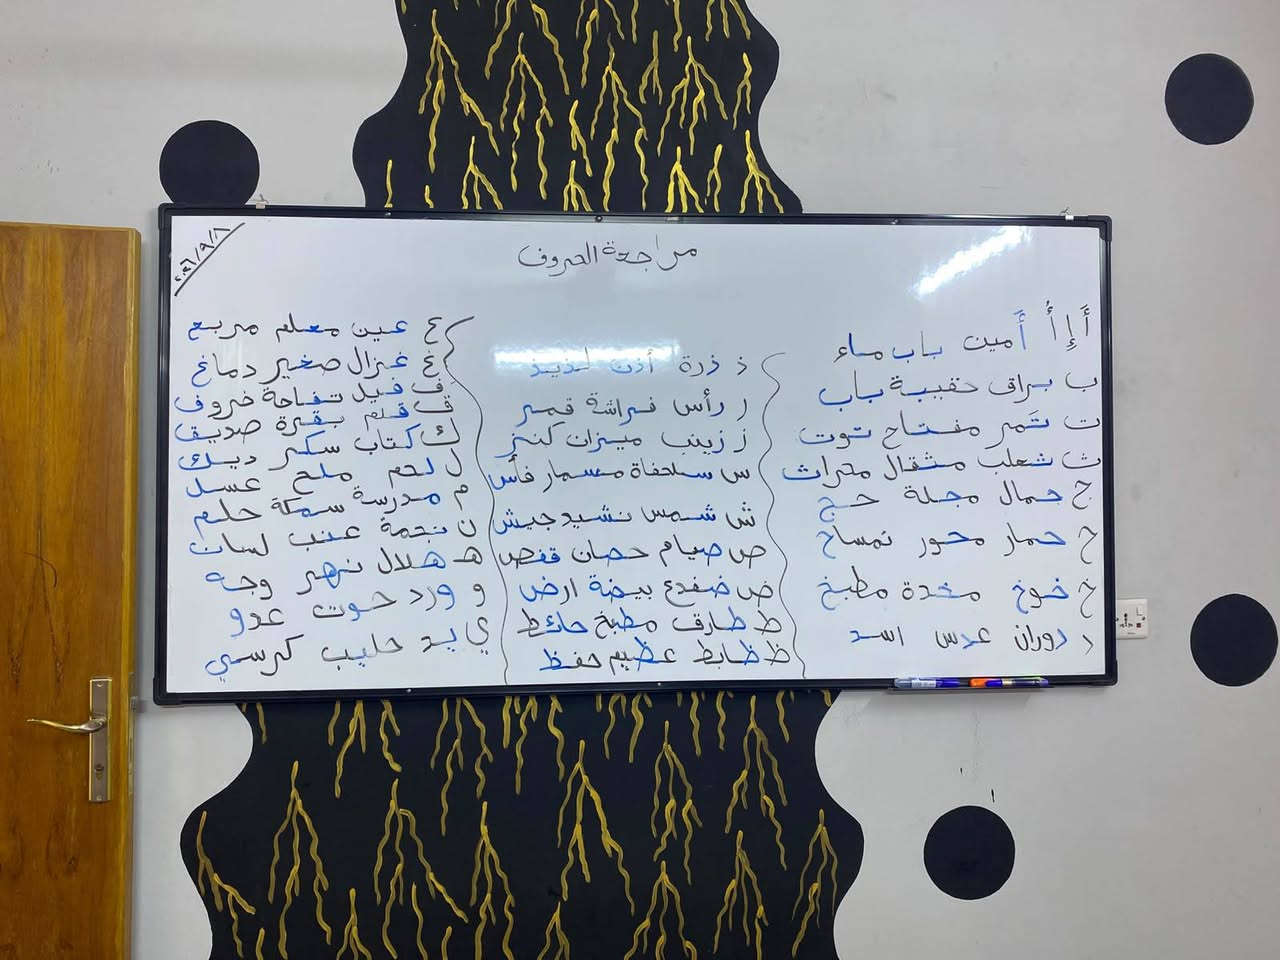 مراجعة الحروف
٢٠٢٦/٩/٨
أَ إِ أُ أَمين باب ماء
ب براق حقيبة باب
ت تَمر مفتاح توت
ث ثعلب مثقال محراث
ج جمال مجلة حج
ح حمار محور تمساح
خ خوخ مخدة مطبخ
د دوران عدس اسد
ذ ذرة أذن لذيذ
ر رأس فراشة قمر
ز زينب ميزان كنز
س سلحفاة مسمار فأس
ش شمس نشيد جيش
ص صيام حصان قفص
ض ضفدع بيضة ارض
ط طارق مطبخ حائط
ظ ظابط عظيم حفظ
ع عين معلم مربع
غ غزال صغير دماغ
ف فيل تفاحة خروف
ق قلم بقرة صديق
ك كتاب سكر ديك
ل لحم ملح عسل
م مدرسة سمكة حلم
ن نجمة عنب لسان
ه هلال نهر وجه
و ورد حوت عدو
ي يد حليب كرسي